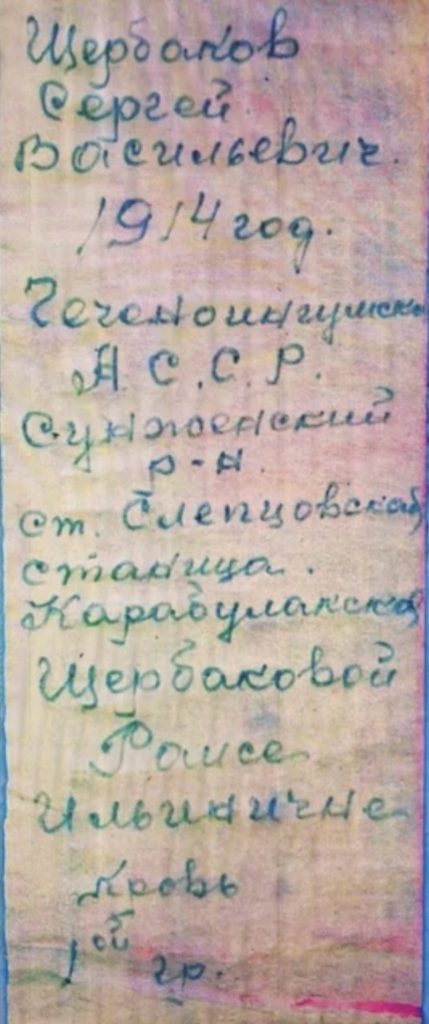 Щербаков
Сергей
Васильевич.
1914 год.
Чеченоингушска
А. С. С. Р.
Сунженский
р-н.
ст. Слепцовская
станица.
Карабулакская
Щербаковой
Раисе
Ильиничне
кровь
1ой
гр.